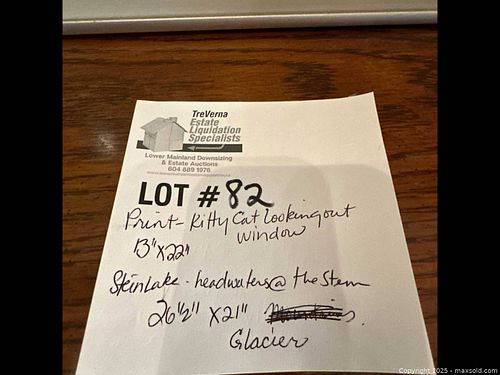 TreVerna
Estate
Liquidation
Specialists
Lower Mainland Downsizing
& Estate Auctions
604 889 1976
LOT # 82
Print - Kitty Cat Looking out
window
13" x 22"
headwaters @ the Stem
26 1/2" x 21"
Glacier
Copyright 2025 - maxsold.com